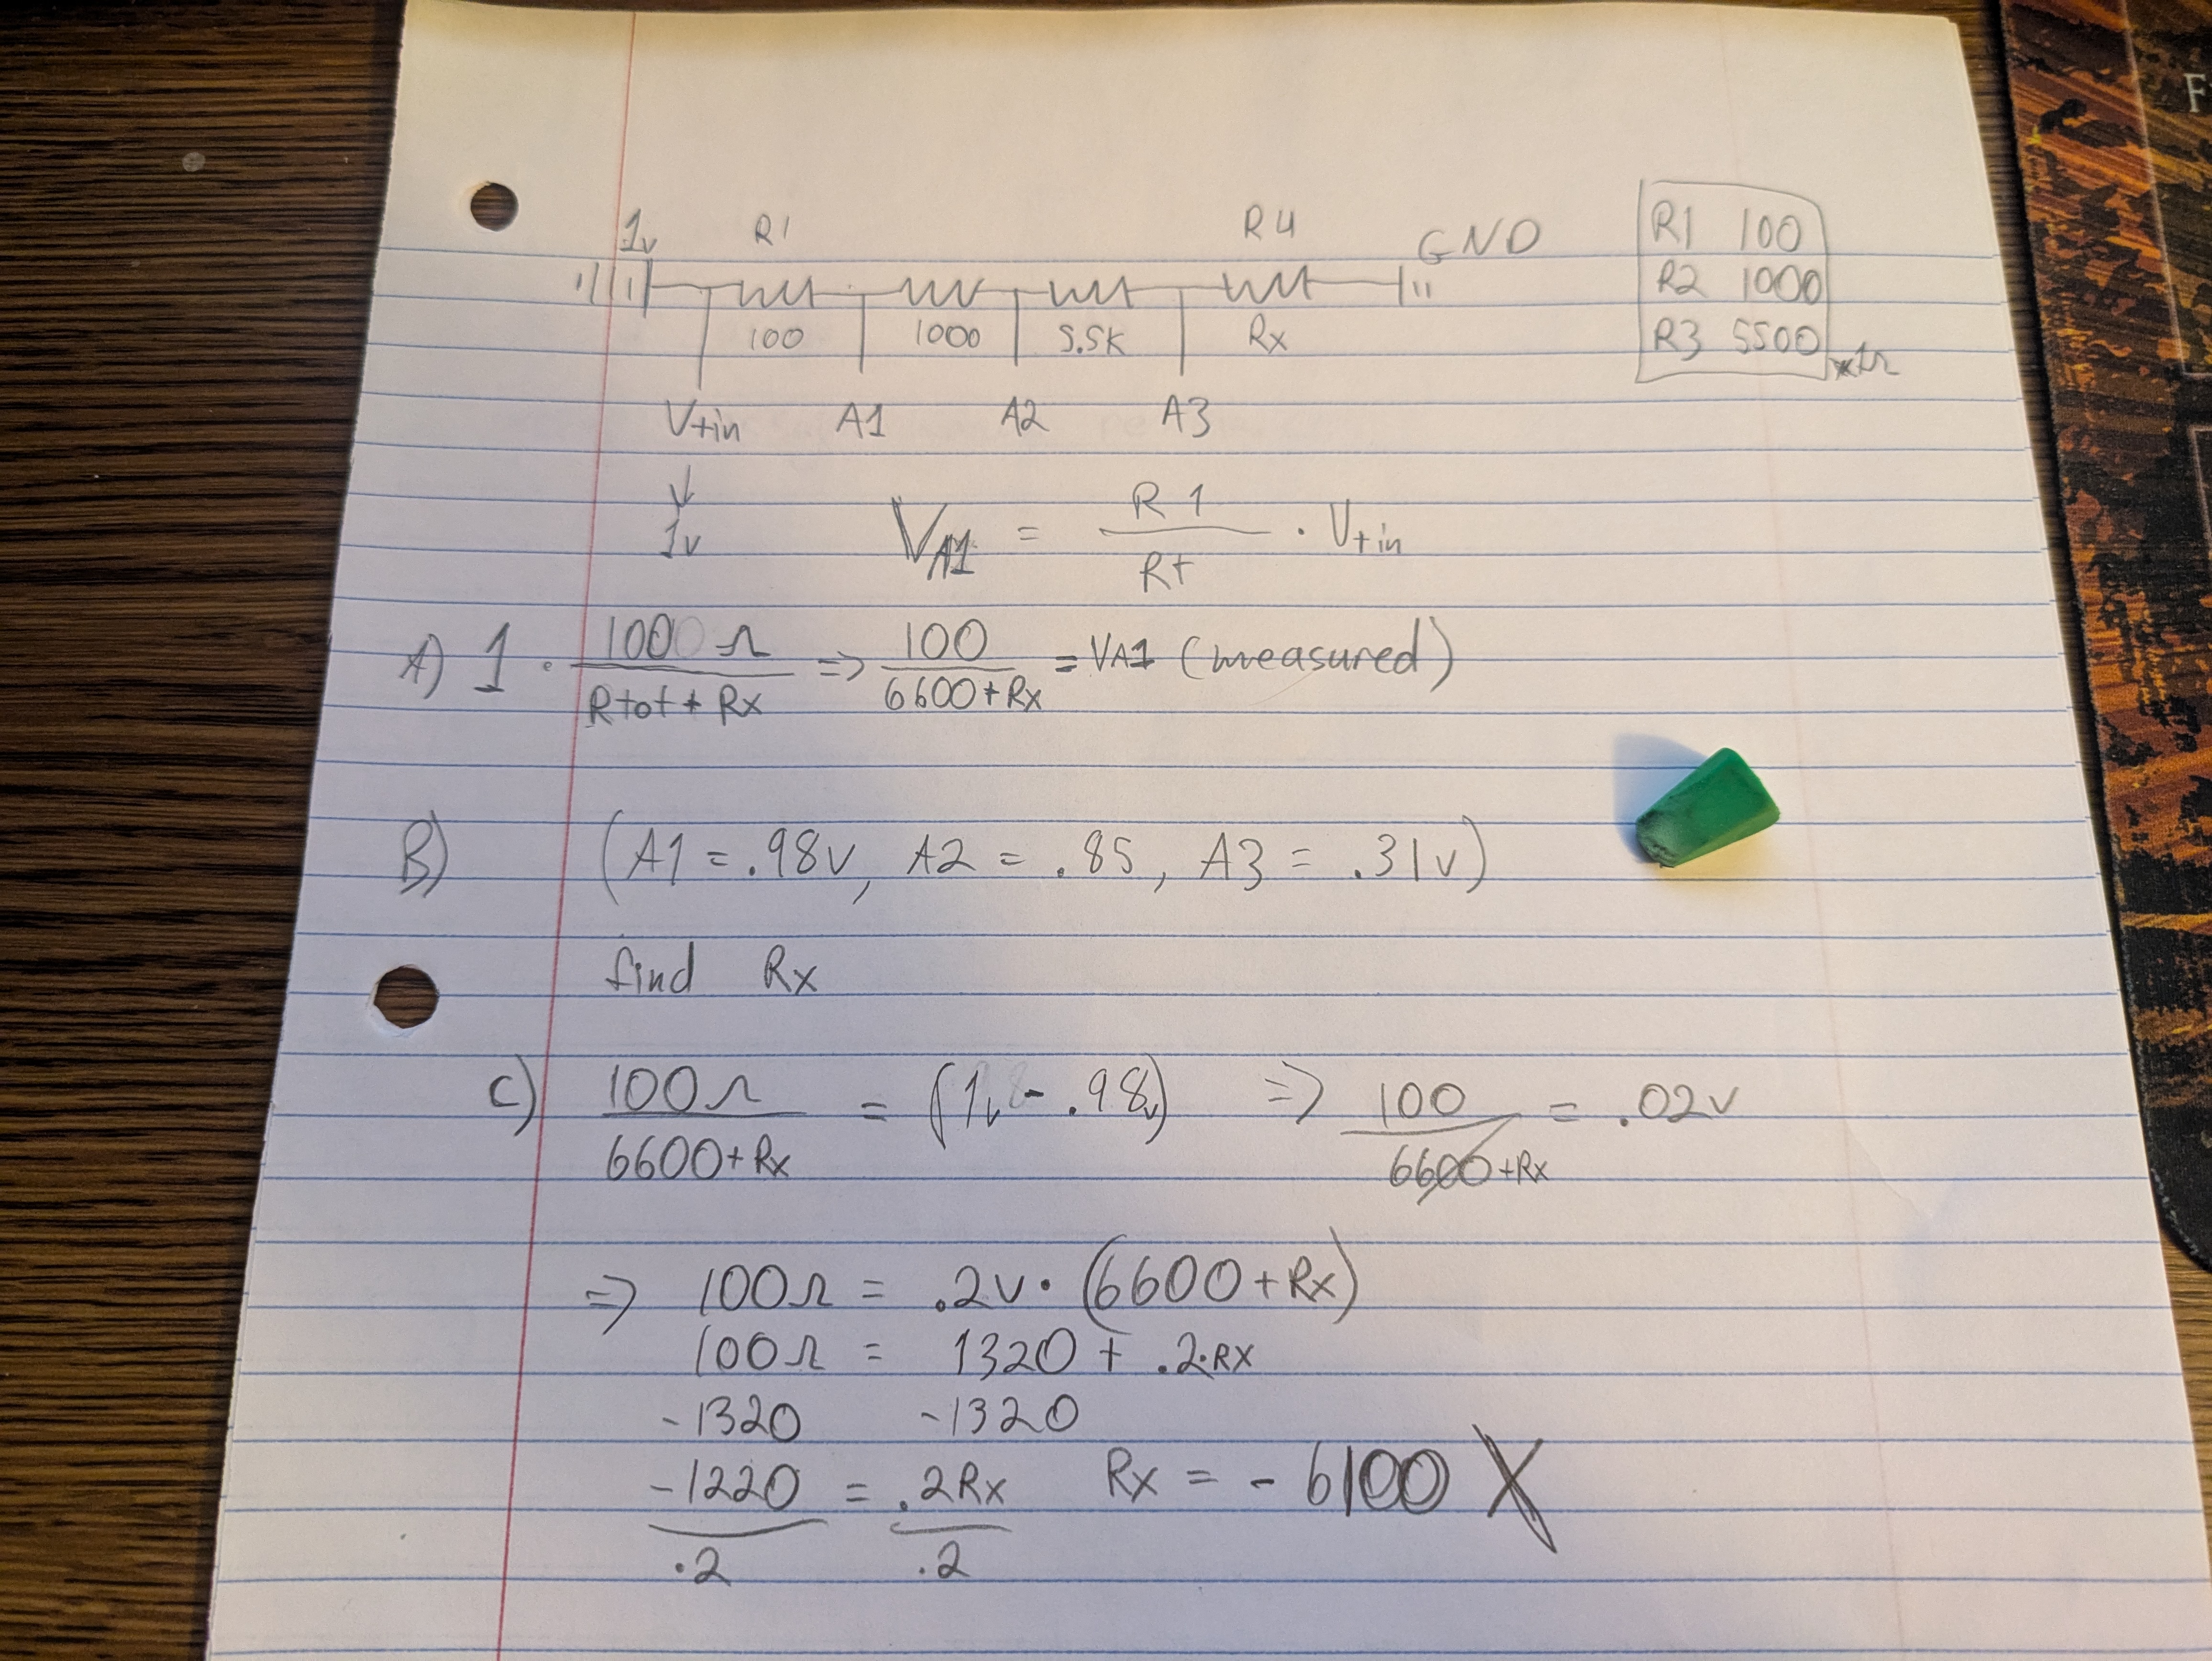 1v R1 R4 GND
100 1000 5.5K Rx
R1 100
R2 1000
R3 5500
V+in A1 A2 A3
↓
1v
VA1 = R1 / Rt · V+in
A) 1 · 1000 Ω / Rtot + Rx => 100 / 6600 + Rx = VA1 (measured)
B) (A1 = .98v, A2 = .85, A3 = .31v)
find Rx
C) 100Ω / 6600 + Rx = (1v - .98v) => 100 / 6600 + Rx = .02v
=> 100Ω = .2v · (6600 + Rx)
100Ω = 1320 + .2·Rx
-1320 -1320
-1220 / .2 = .2Rx / .2 Rx = - 6100 X
F